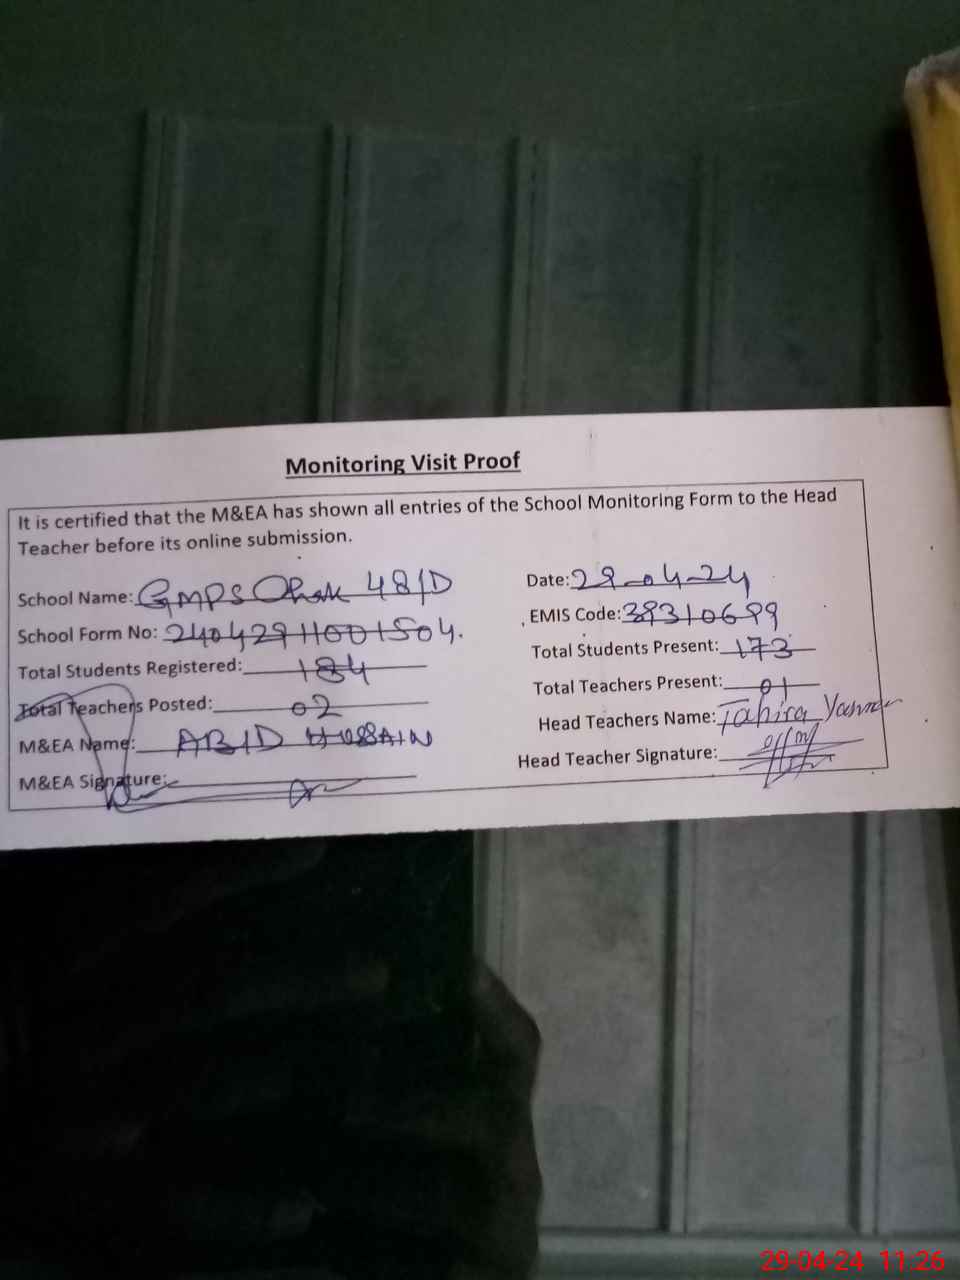 Monitoring Visit Proof
It is certified that the M&EA has shown all entries of the School Monitoring Form to the Head
Teacher before its online submission.
School Name: GMPS Chak 48/D Date: 29-04-24
School Form No: 24042911001504. EMIS Code: 39310699
Total Students Registered: 184 Total Students Present: 173
Total Teachers Posted: 02 Total Teachers Present: 01
M&EA Name: ABID HUSSAIN Head Teachers Name: Tahira
M&EA Signature: Head Teacher Signature:
29-04-24 11:26